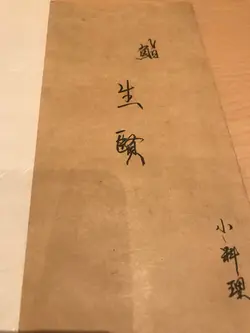 鮨
生
賢
小料理